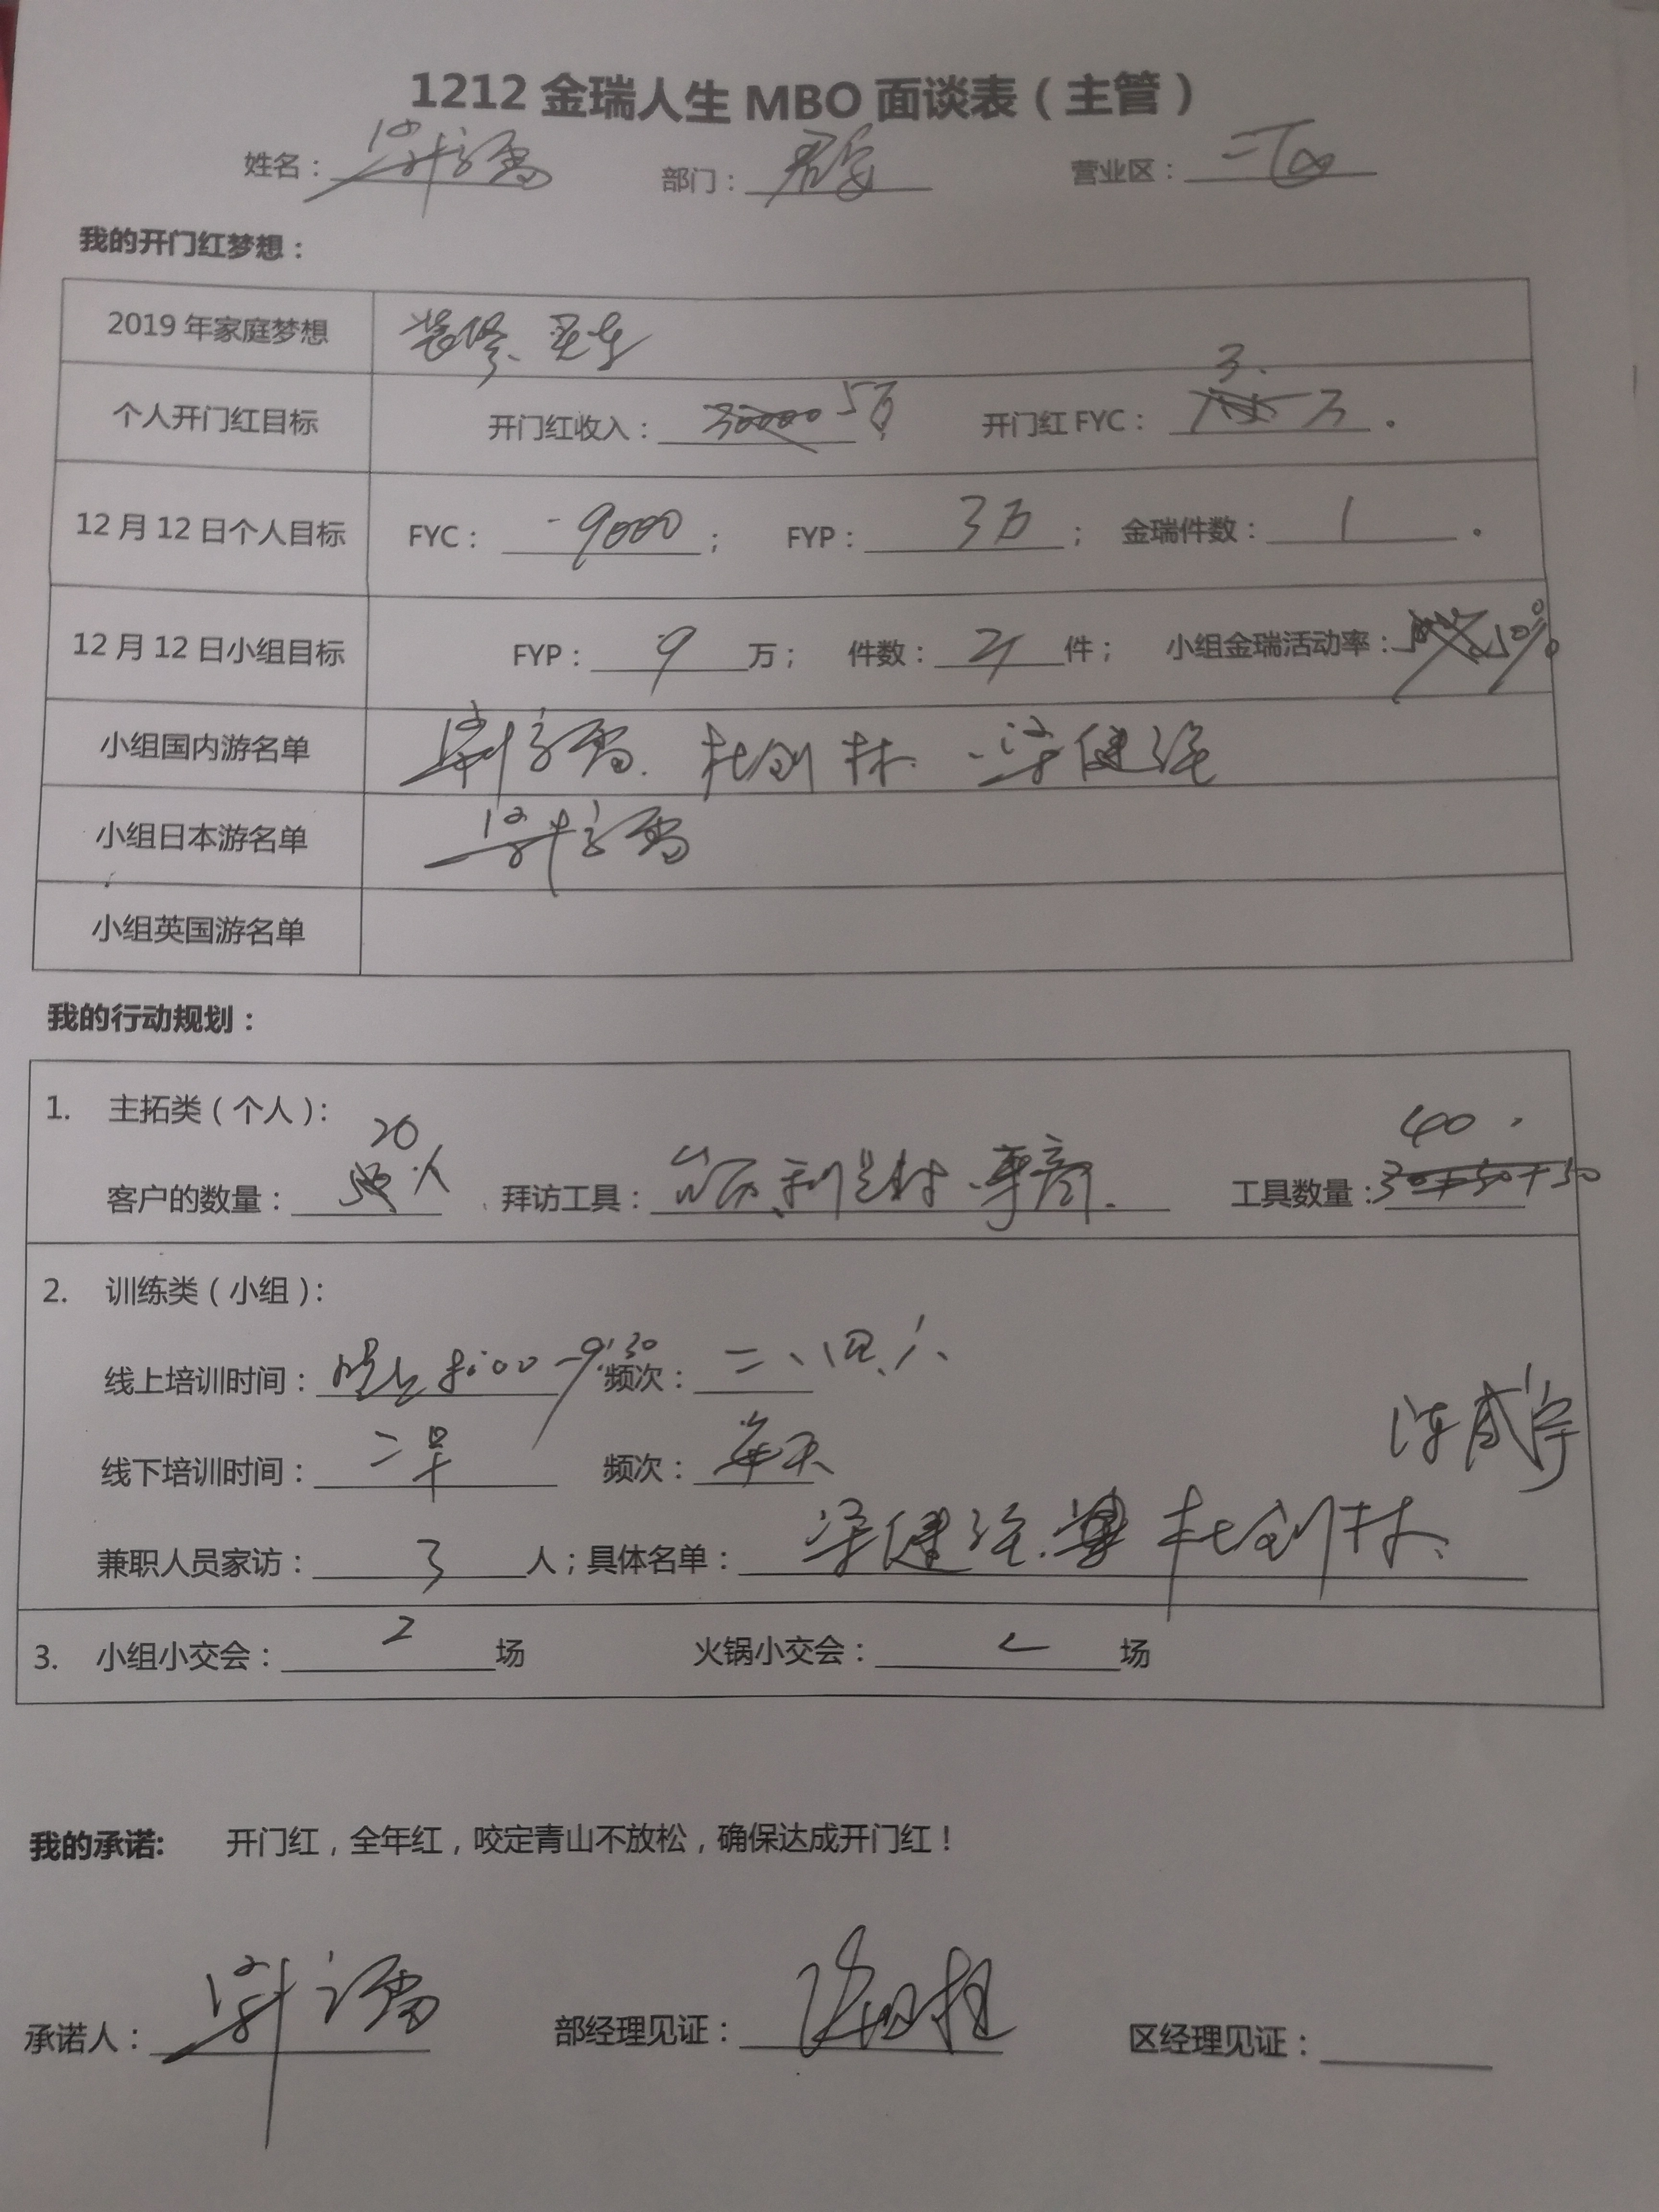 1212金瑞人生MBO面谈表（主管）
姓名： 部门： 营业区：二区
我的开门红梦想：
2019年家庭梦想 装修、买车
个人开门红目标 开门红收入：5万 开门红FYC：3万。
12月12日个人目标 FYC：9000； FYP：3万； 金瑞件数：1。
12月12日小组目标 FYP：9万； 件数：件； 小组金瑞活动率：50%
小组国内游名单 杜剑林 梁健强
小组日本游名单
小组英国游名单
我的行动规划：
1. 主拓类（个人）：
客户的数量：20人 拜访工具： 工具数量：40
2. 训练类（小组）：
线上培训时间：晚上8:00-9:30 频次：二、四、六
线下培训时间：二早 频次：每天
兼职人员家访：3人；具体名单：梁健强、杜剑林、陈威宇
3. 小组小交会：2场 火锅小交会：2场
我的承诺： 开门红，全年红，咬定青山不放松，确保达成开门红！
承诺人： 部经理见证： 区经理见证：